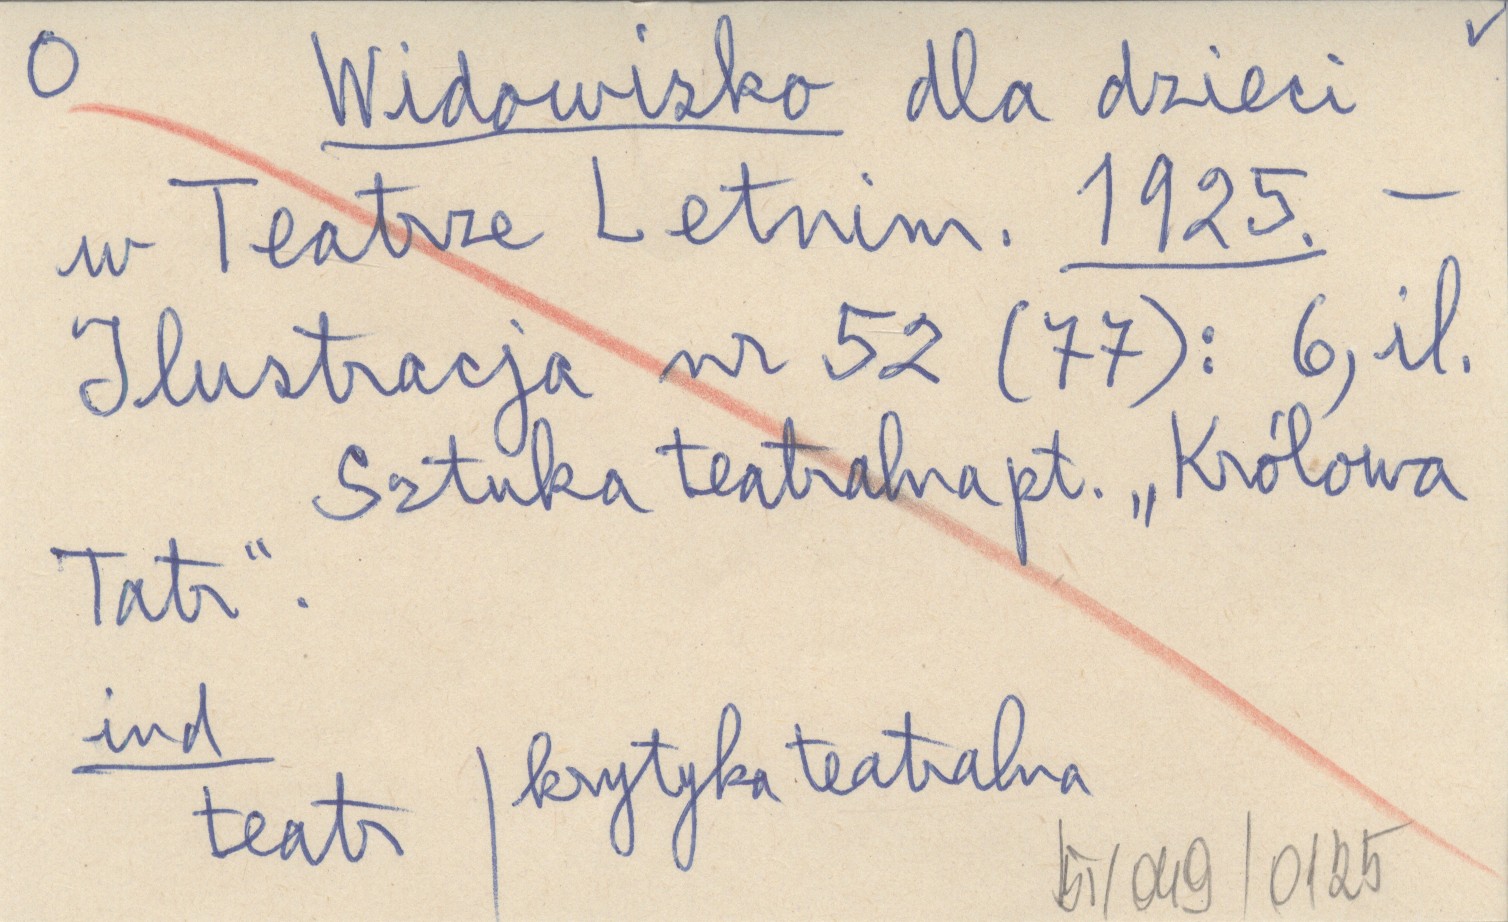 O Widowisko dla dzieci ✓
w Teatrze Letnim. 1925. –
Ilustracja nr 52 (77): 6, il.
Sztuka teatralna pt. „Królowa
Tatr“.
ind
teatr | krytyka teatralna
/049/0125